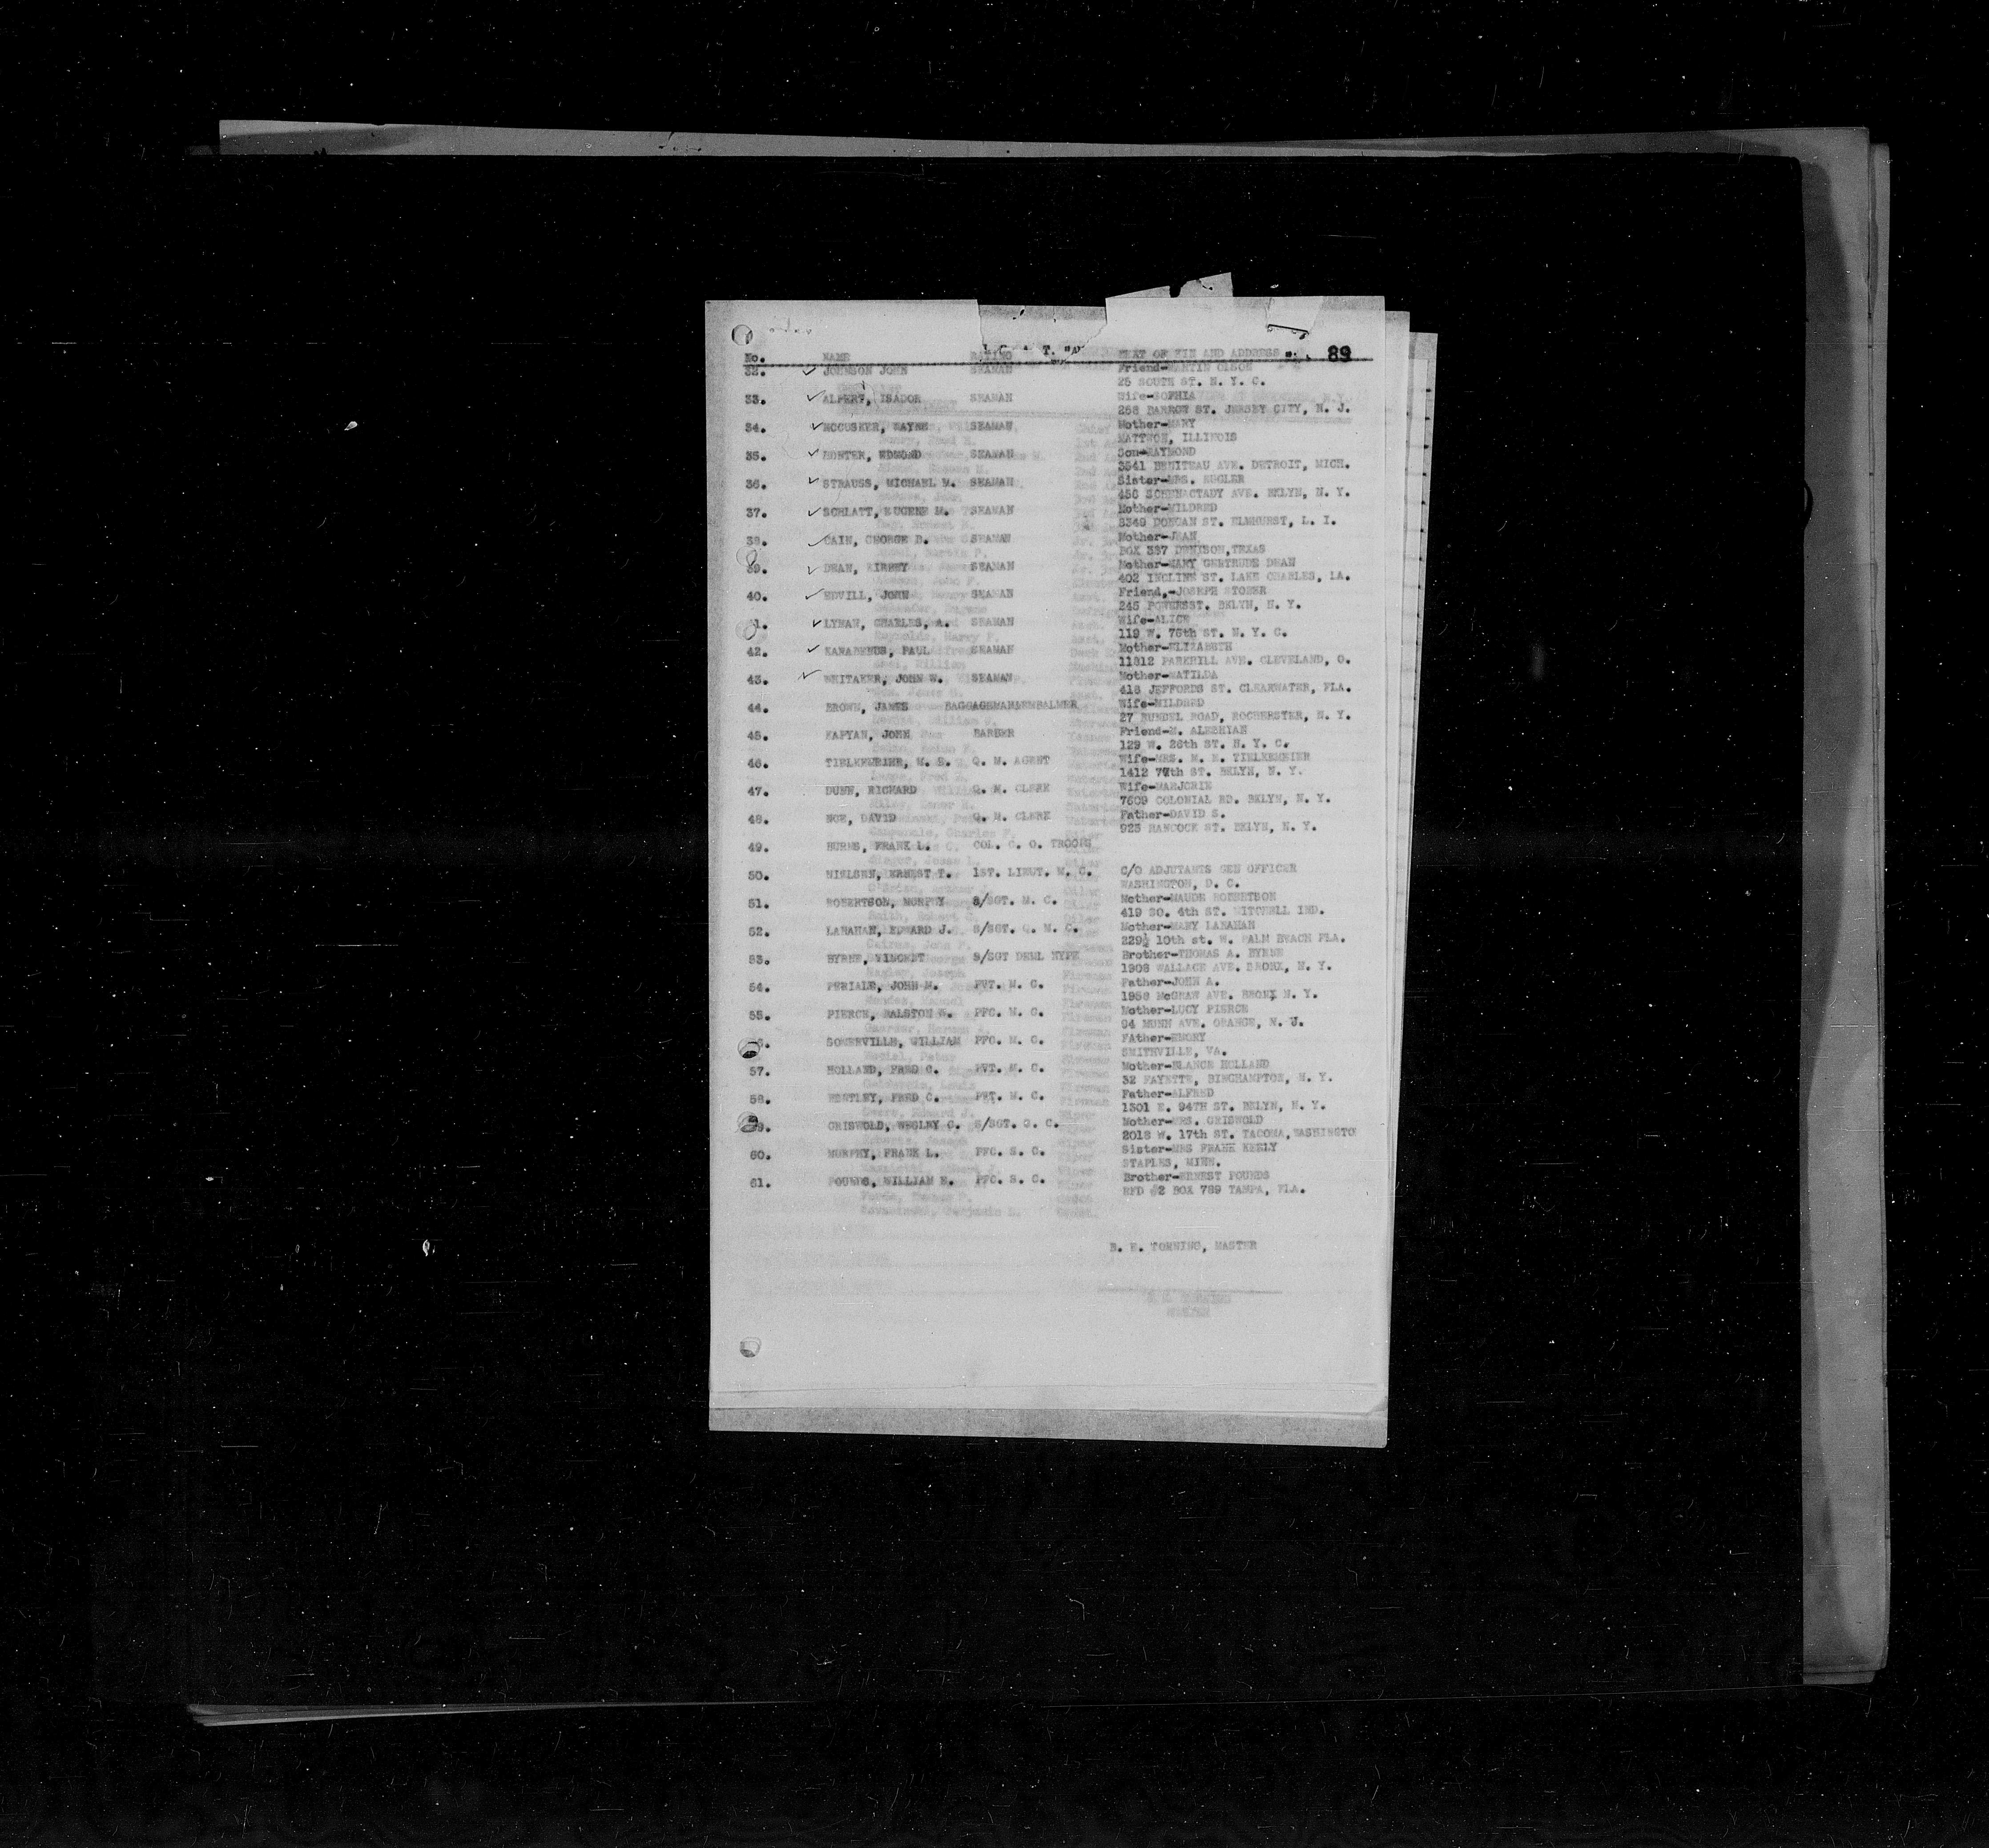 89
No. NAME RATING NEXT OF KIN AND ADDRESS
32. JOHNSON JOHN SEAMAN Friend-MARTIN OLSON
25 SOUTH ST. N. Y. C.
33. ALPERT, ISADOR SEAMAN Wife-SOPHIA
258 BARROW ST. JERSEY CITY, N. J.
34. MCCUSKER, WAYNE SEAMAN Mother-MARY
MATTWON, ILLINOIS
35. EDMOND SEAMAN Son-RAYMOND
3541 BENITEAU AVE. DETROIT, MICH.
36. STRAUSS, MICHAEL M. SEAMAN Sister-MRS. KUGLER
458 SCHENACTADY AVE. BKLYN, N. Y.
37. SCHLATT, EUGENE M. SEAMAN Mother-MILDRED
8349 DONGAN ST. ELMHURST, L. I.
38. CAIN, GEORGE B. SEAMAN Mother-JEAN
BOX 337 DENISON, TEXAS
39. DEAN, KIRBEY SEAMAN Mother-MARY GERTRUDE DEAN
402 INCLINE ST. LAKE CHARLES, LA.
40. EDVILL, JOHN SEAMAN Friend,-JOSEPH STOBER
245 POWERSST. BKLYN, N. Y.
41. LYMAN, CHARLES, A. SEAMAN Wife-ALICE
119 W. 76th ST. N. Y. C.
42. KANABENUS, PAUL SEAMAN Mother-ELIZABETH
11812 PARKHILL AVE. CLEVELAND, O.
43. WHITAKER, JOHN W. SEAMAN Mother-MATILDA
418 JEFFORDS ST. CLEARWATER, FLA.
44. BROWN, JAMES BAGGAGEMAN&EMBALMER Wife-MILDRED
27 RUNDEL ROAD, ROCHERSTER, N. Y.
45. KAPYAN, JOHN BARBER Friend-M. ALESHIAN
129 W. 26th ST. N. Y. C.
46. M. E. Q. M. AGENT Wife-MRS. M. E. TIELKEMEIER
1412 77th ST. BKLYN, N. Y.
47. DUNN, RICHARD Q. M. CLERK Wife-MARJORIE
7609 COLONIAL RD. BKLYN, N. Y.
48. NOE, DAVID Q. M. CLERK Father-DAVID S.
923 HANCOCK ST. BKLYN, N. Y.
49. BURNS, FRANK L. COL. C. O. TROOPS
50. NIELSEN, ERNEST T. 1ST. LIEUT. M. C. C/O ADJUTANTS GEN OFFICER
WASHINGTON, D. C.
51. ROBERTSON, MORPHY S/SGT. M. C. Mother-MAUDE ROBERTSON
419 SO. 4th ST. MITCHELL IND.
52. LANAHAN, EDWARD J. S/SGT. Q. M. C. Mother-MARY LANAHAN
229½ 10th st. W. PALM BEACH FLA.
53. BYRNE, VINCENT S/SGT DEML NYPE Brother-THOMAS A. BYRNE
1908 WALLACE AVE. BRONX, N. Y.
54. PERIALE, JOHN M. PVT. M. C. Father-JOHN A.
1958 McGRAW AVE. BRONX N. Y.
55. PIERCE, RALSTON W. PFC. M. C. Mother-LUCY PIERCE
94 MUNN AVE. ORANGE, N. J.
56. SOMERVILLE, WILLIAM PFC. M. C. FAther-EMORY
SMITHVILLE, VA.
57. HOLLAND, FRED C. PVT. M. C. Mother-BLANCE HOLLAND
32 FAYETTE, BINGHAMPTON, N. Y.
58. FRED C. M. C. Father-ALFRED
1301 E. 94TH ST. BKLYN, N. Y.
59. GRISWOLD, WESLEY C. S/SGT. S. C. Mother-MRS. GRISWOLD
2018 W. 17th ST. TACOMA, WASHINGTO
60. MURPHY, FRANK L. PFC. S. C. Sister-MRS FRANK KERLY
STAPLES, MINN.
61. POUNDS, WILLIAM E. PFC. S. C. Brother-ERNEST POUNDS
RFD #2 BOX 789 TAMPA, FLA.
B. E. TORNING, MASTER